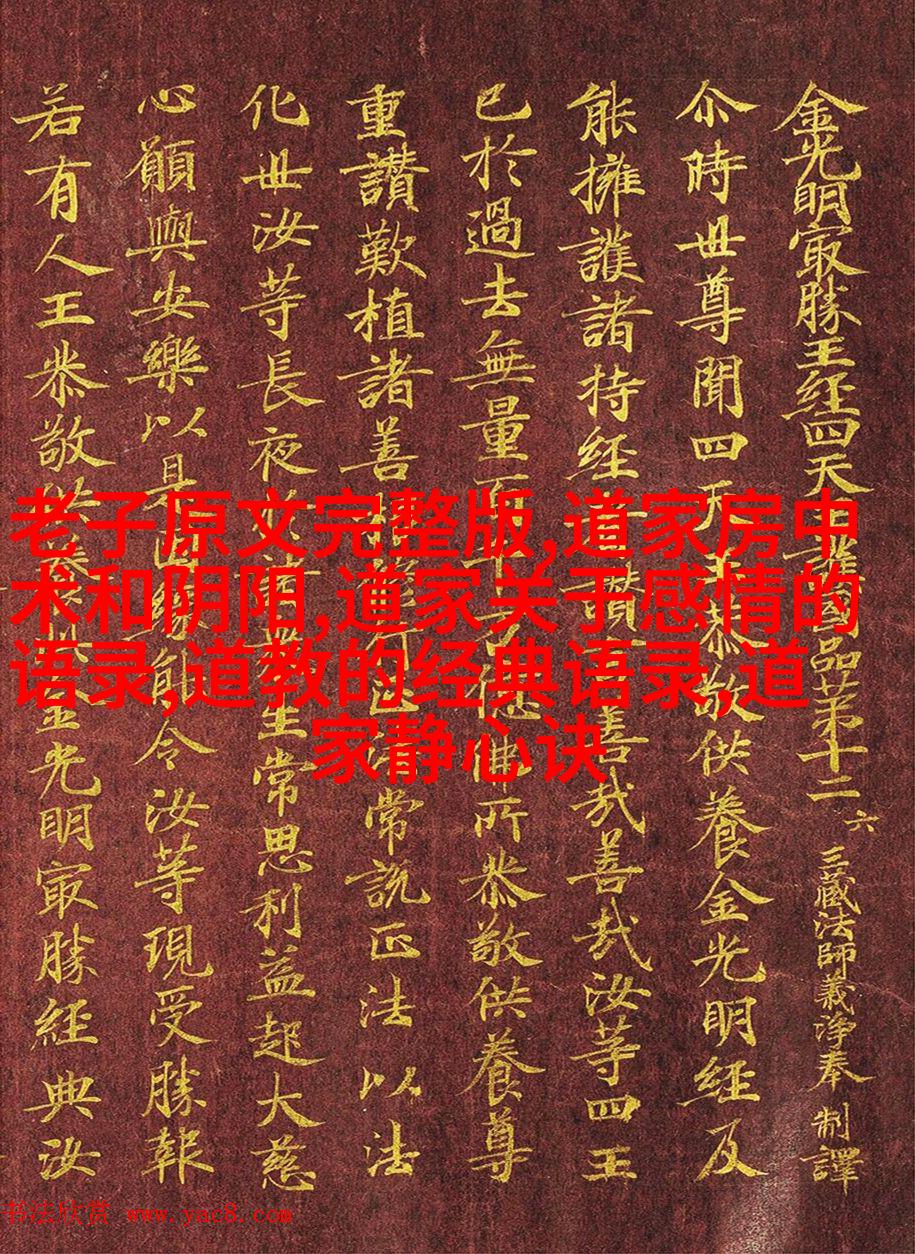 金光明冣勝王経四天護國品苐十二 六 三藏法師義淨奉 制譯
尒時世尊聞四天恭敬供養金光明経及
能擁護諸持経讃善哉善哉汝等四王
已於過去無量百佛所恭敬供養尊
重讃歎植諸善行正常說正法以法
化世汝等長夜於諸生常思利益起大慈
心願與安樂以是因緣能令汝等現受勝報
若有人王恭敬供養金光明冣勝経典汝
老子原文完整版,道家房中
术和阴阳,道家关于感情的
语录,道教的经典语录,道
家静心诀
书法欣赏 www.yac8.com